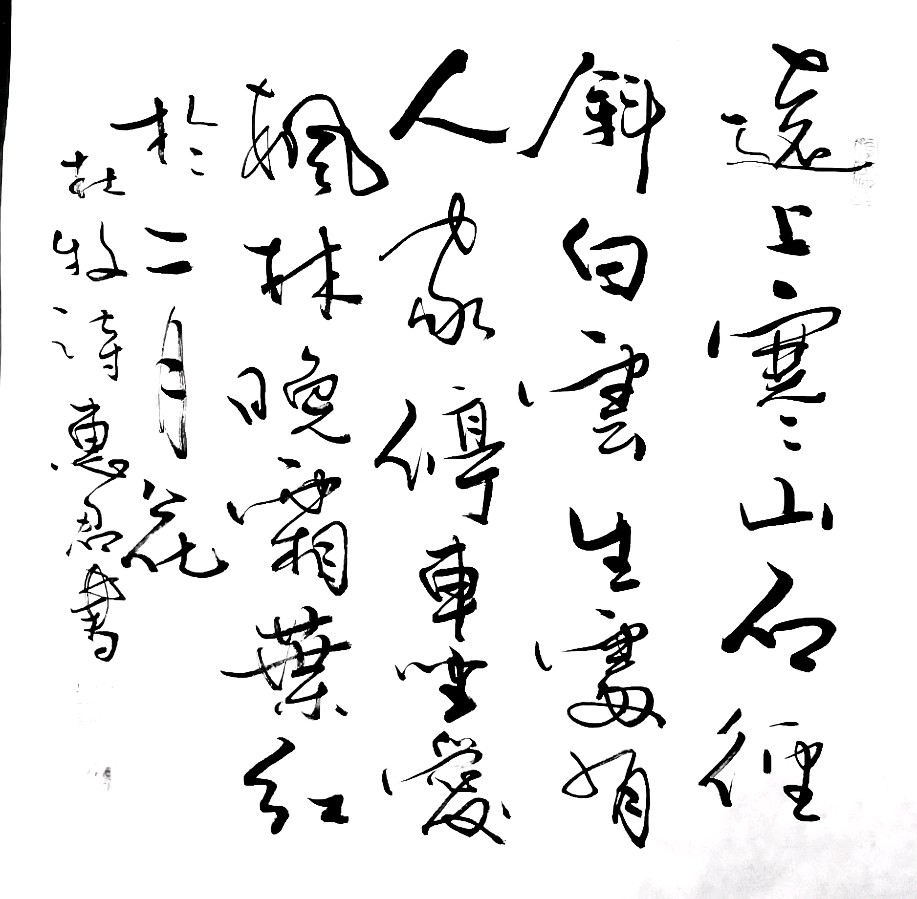 遠上寒山石徑
斜白雲生處有
人家停車坐愛
楓林晚霜葉紅
於二月花
杜牧詩惠君書